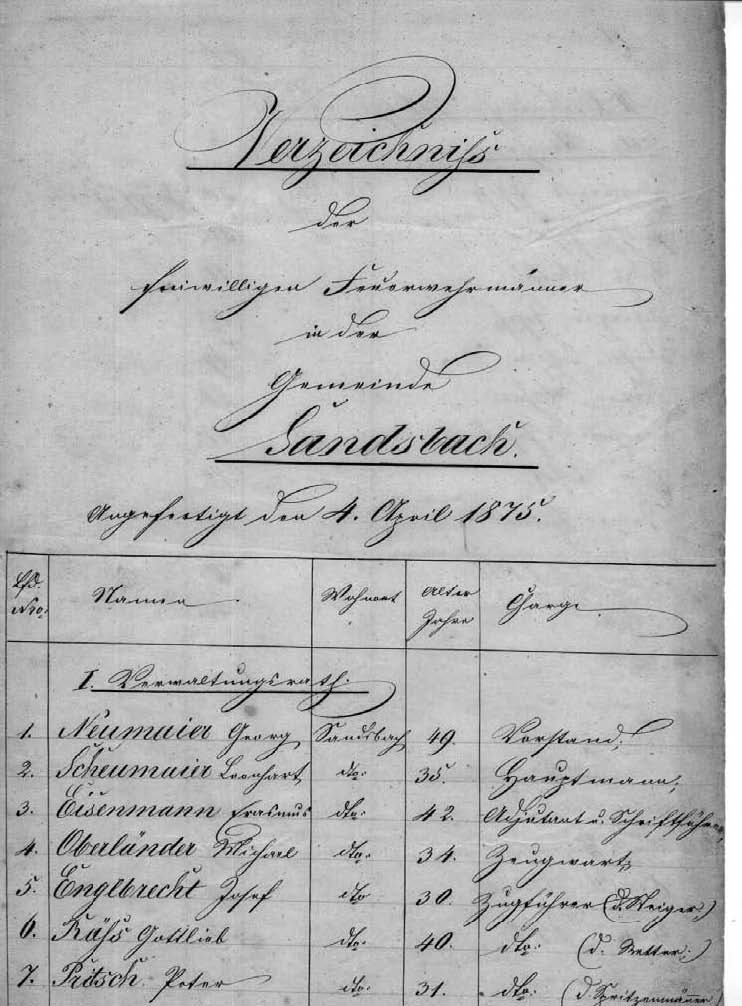 Verzeichniss
der
freiwilligen Feuerwehrmänner
in der
Gemeinde
Sandsbach.
Angefertigt den 4. April 1875.
Lfd. Nro: Namen. Wohnort Alter Jahre Charge
I. Verwaltungsrath.
1. Neumaier Georg Sandsbach 49. Vorstand,
2. Scheumaier Leonhart dto. 35. Hauptmann,
3. Eisenmann Erasmus dto. 42. Adjutant u. Schriftführer,
4. Oberländer Michael dto. 34. Zeugwart,
5. Englbrecht Josef dto 30. Zugführer (d. Steiger,)
6. Räß Gottlieb dto. 40. dto. (d. Retter,)
7. Pritsch Peter dto. 31. dto. (d. Spritzenmänner)